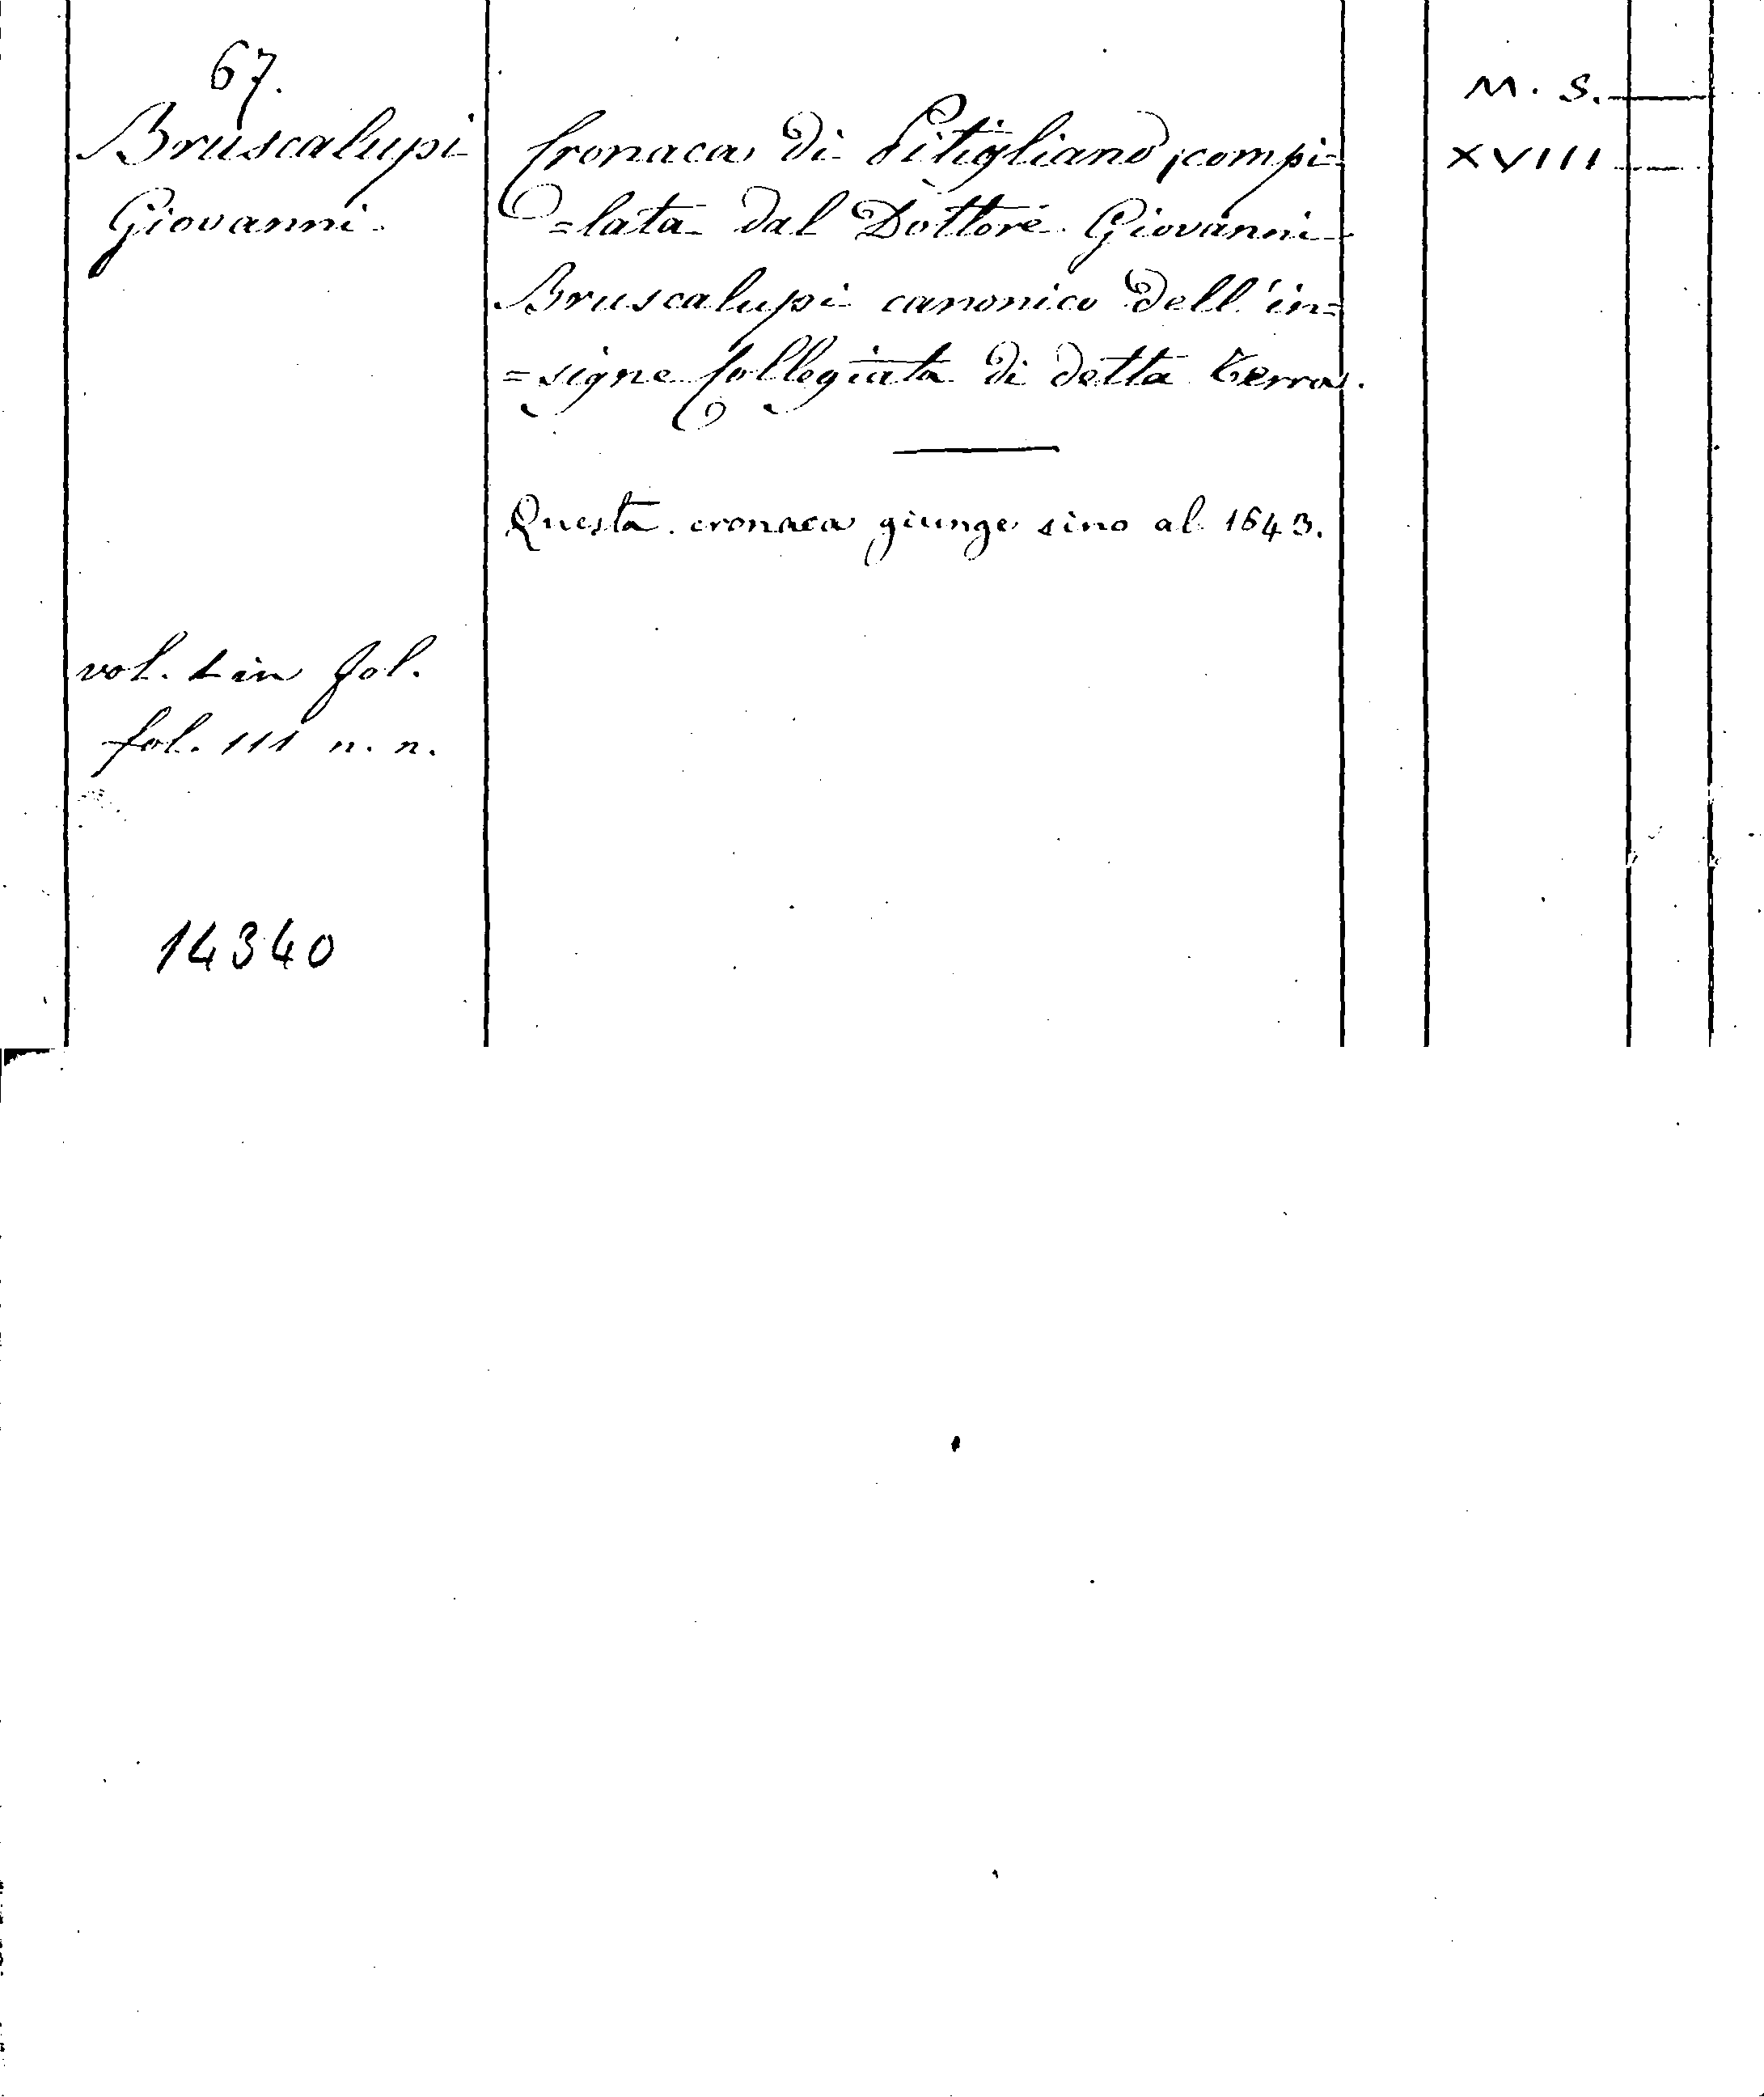 67.
Bruscalupi
Giovanni
Cronaca di Pitigliano, compi=
=lata dal Dottore Giovanni
Bruscalupi canonico dell'in=
=signe Collegiata di detta Terra.
Questa cronaca giunge sino al 1643.
vol. 1 in fol.
fol. 111 n. n.
14340
M. S.
XVIII